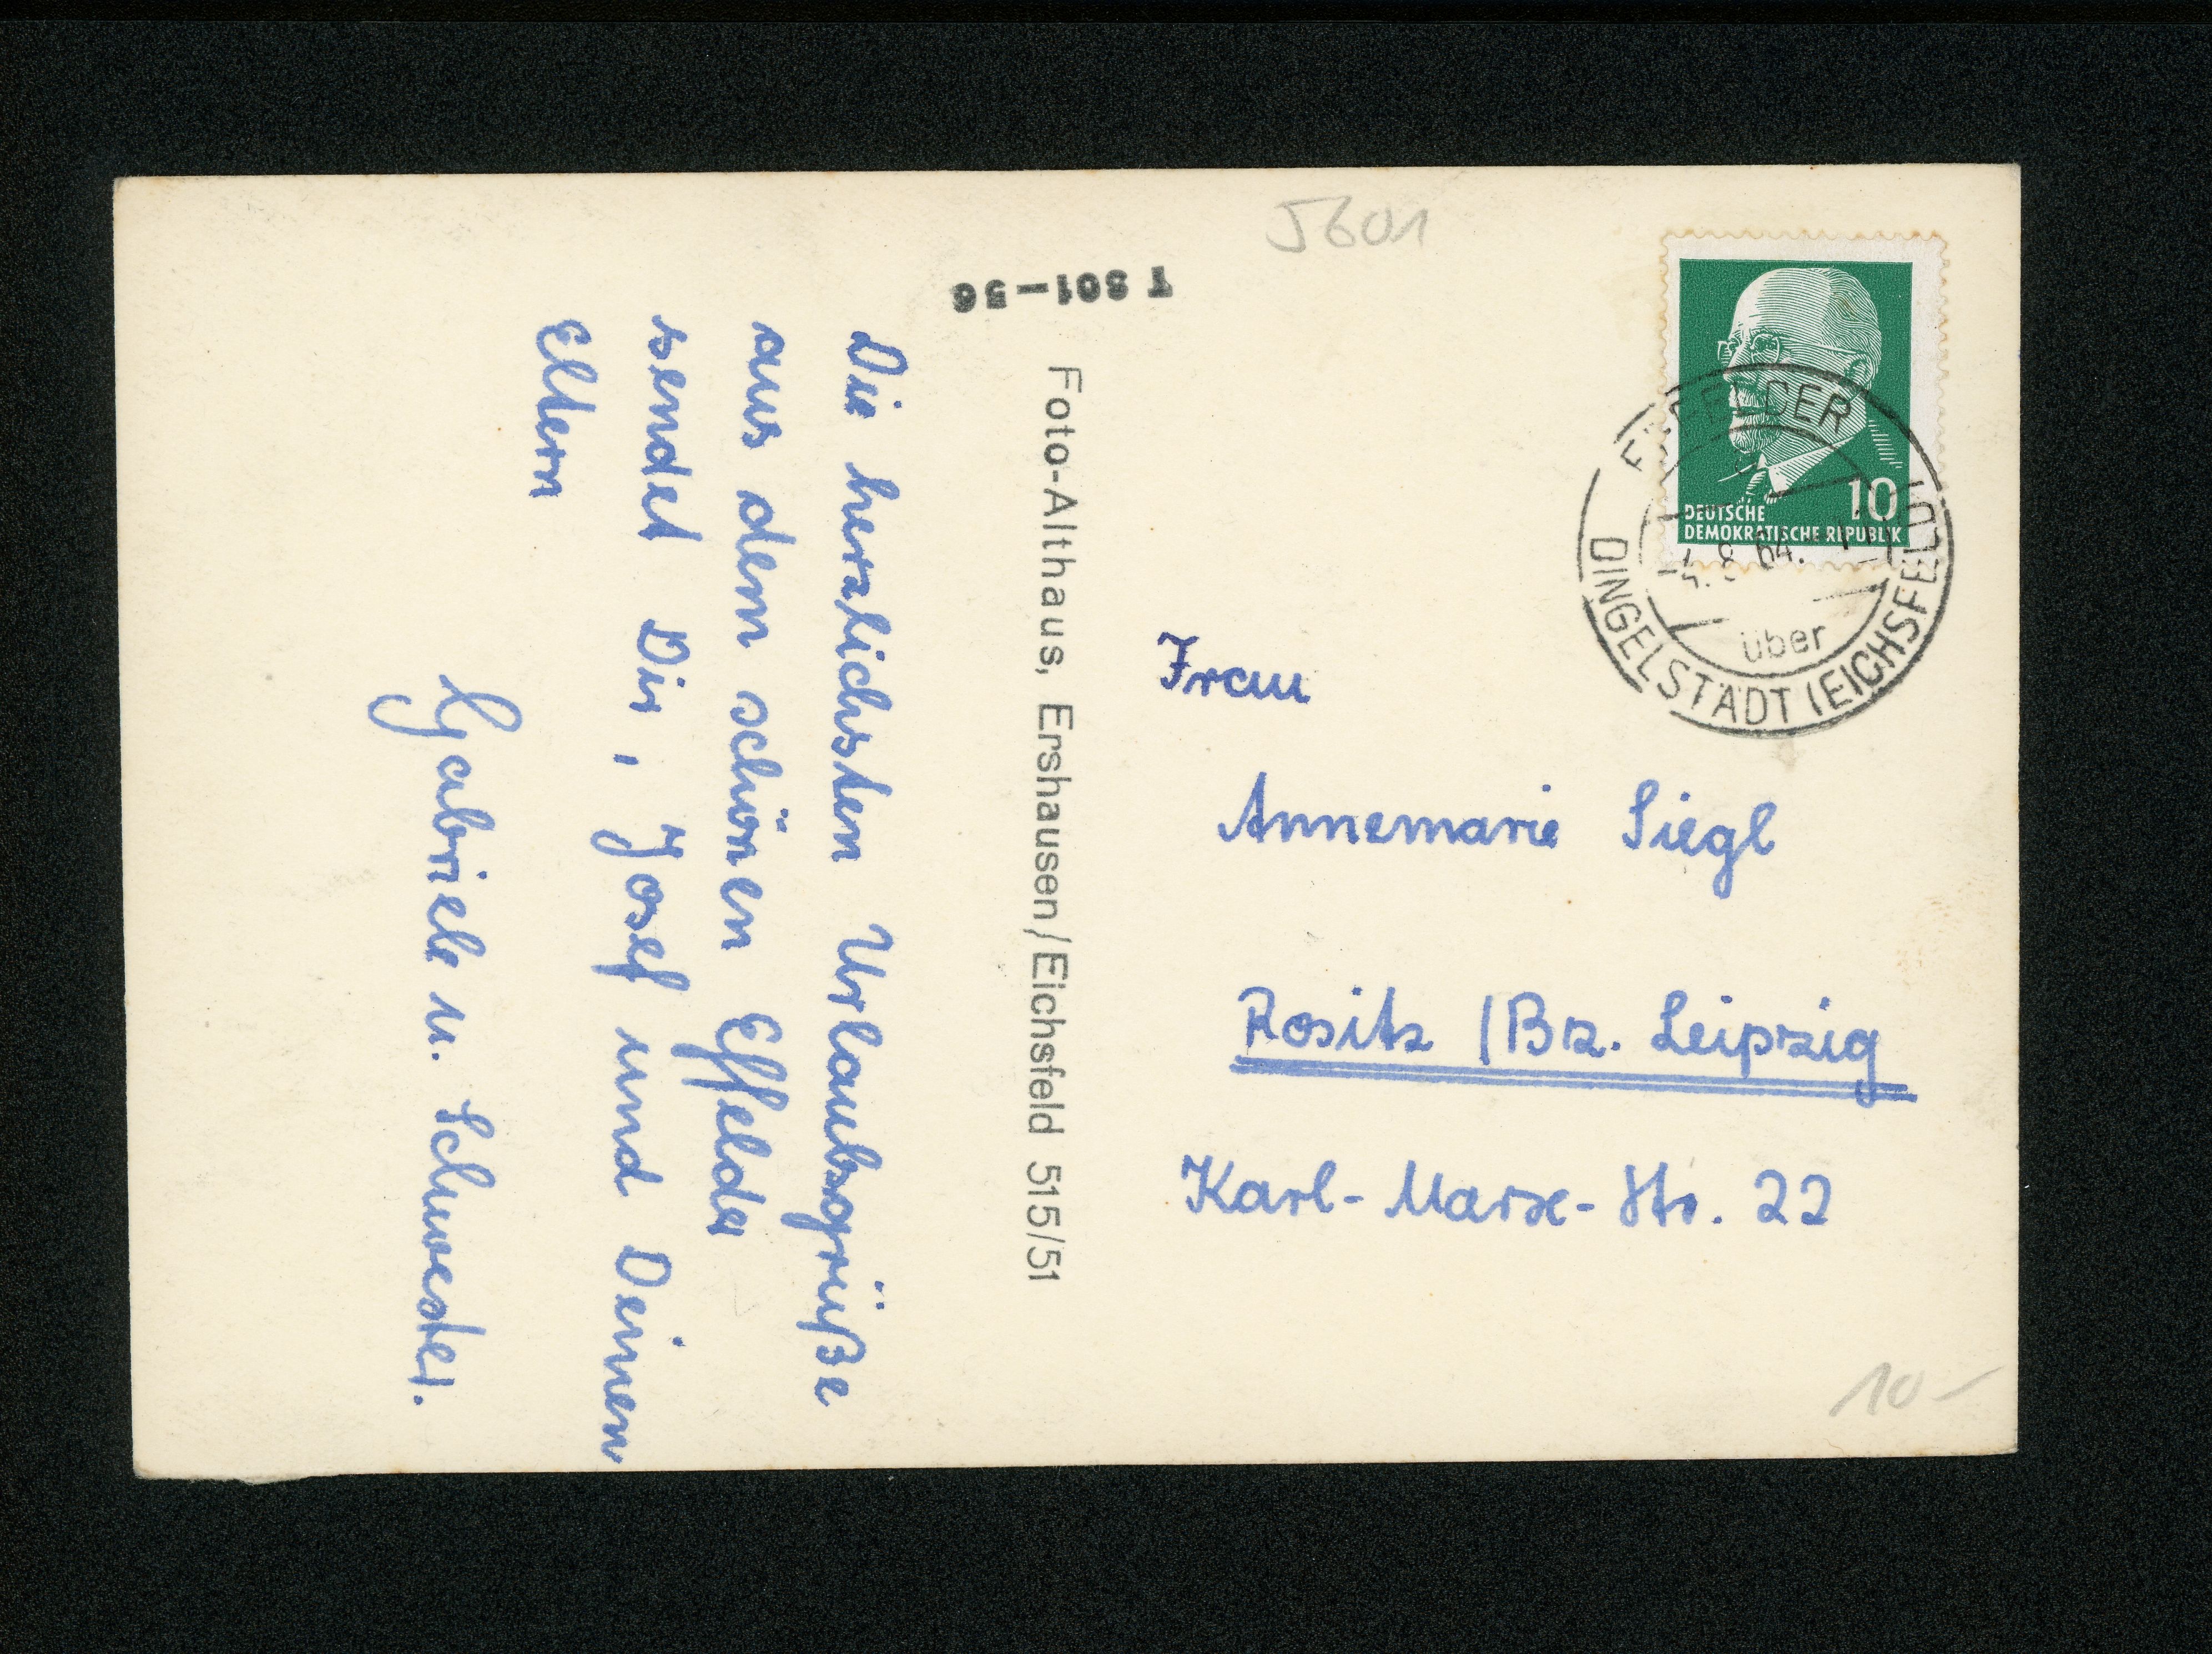 Die herzlichsten Urlaubsgrüße
aus dem schönen Effelder
sendet Dir, Josef und Deinen
Eltern
Gabriele u. Schwester.
T 801-56
Foto-Althaus, Ershausen/Eichsfeld 515/51
5601
10
DEUTSCHE
DEMOKRATISCHE REPUBLIK
EFFELDER
64.
über
DINGELSTÄDT (EICHSFELD)
Frau
Annemarie Siegl
Rositz /Bz. Leipzig
Karl-Marx-Str. 22
10-